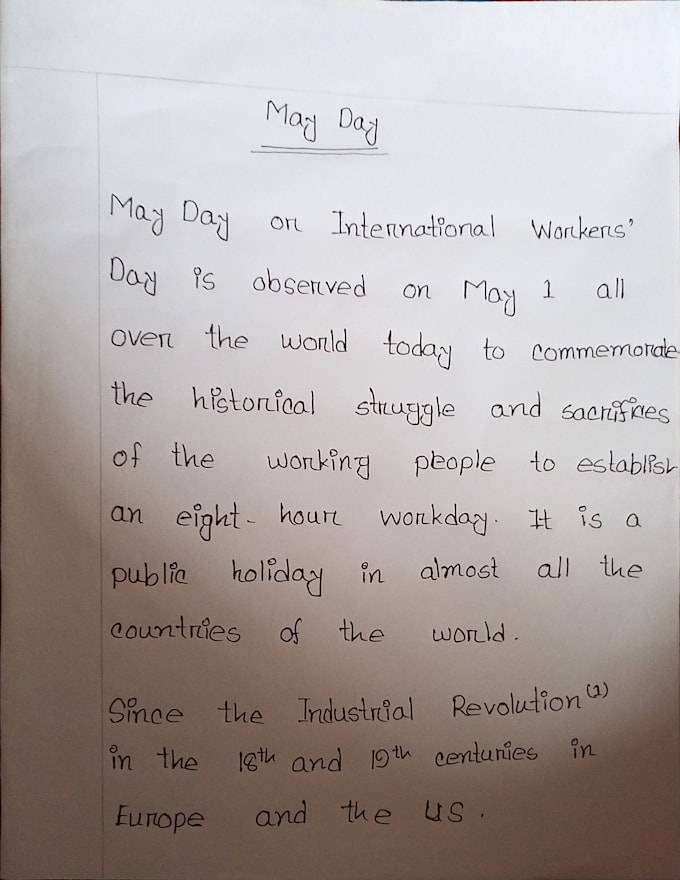 May Day
May Day or International Workers'
Day is observed on May 1 all
over the world today to commemorate
the historical struggle and sacrifices
of the working people to establish
an eight-hour workday. It is a
public holiday in almost all the
countries of the world.
Since the Industrial Revolution (1)
in the 18th and 19th centuries in
Europe and the US.